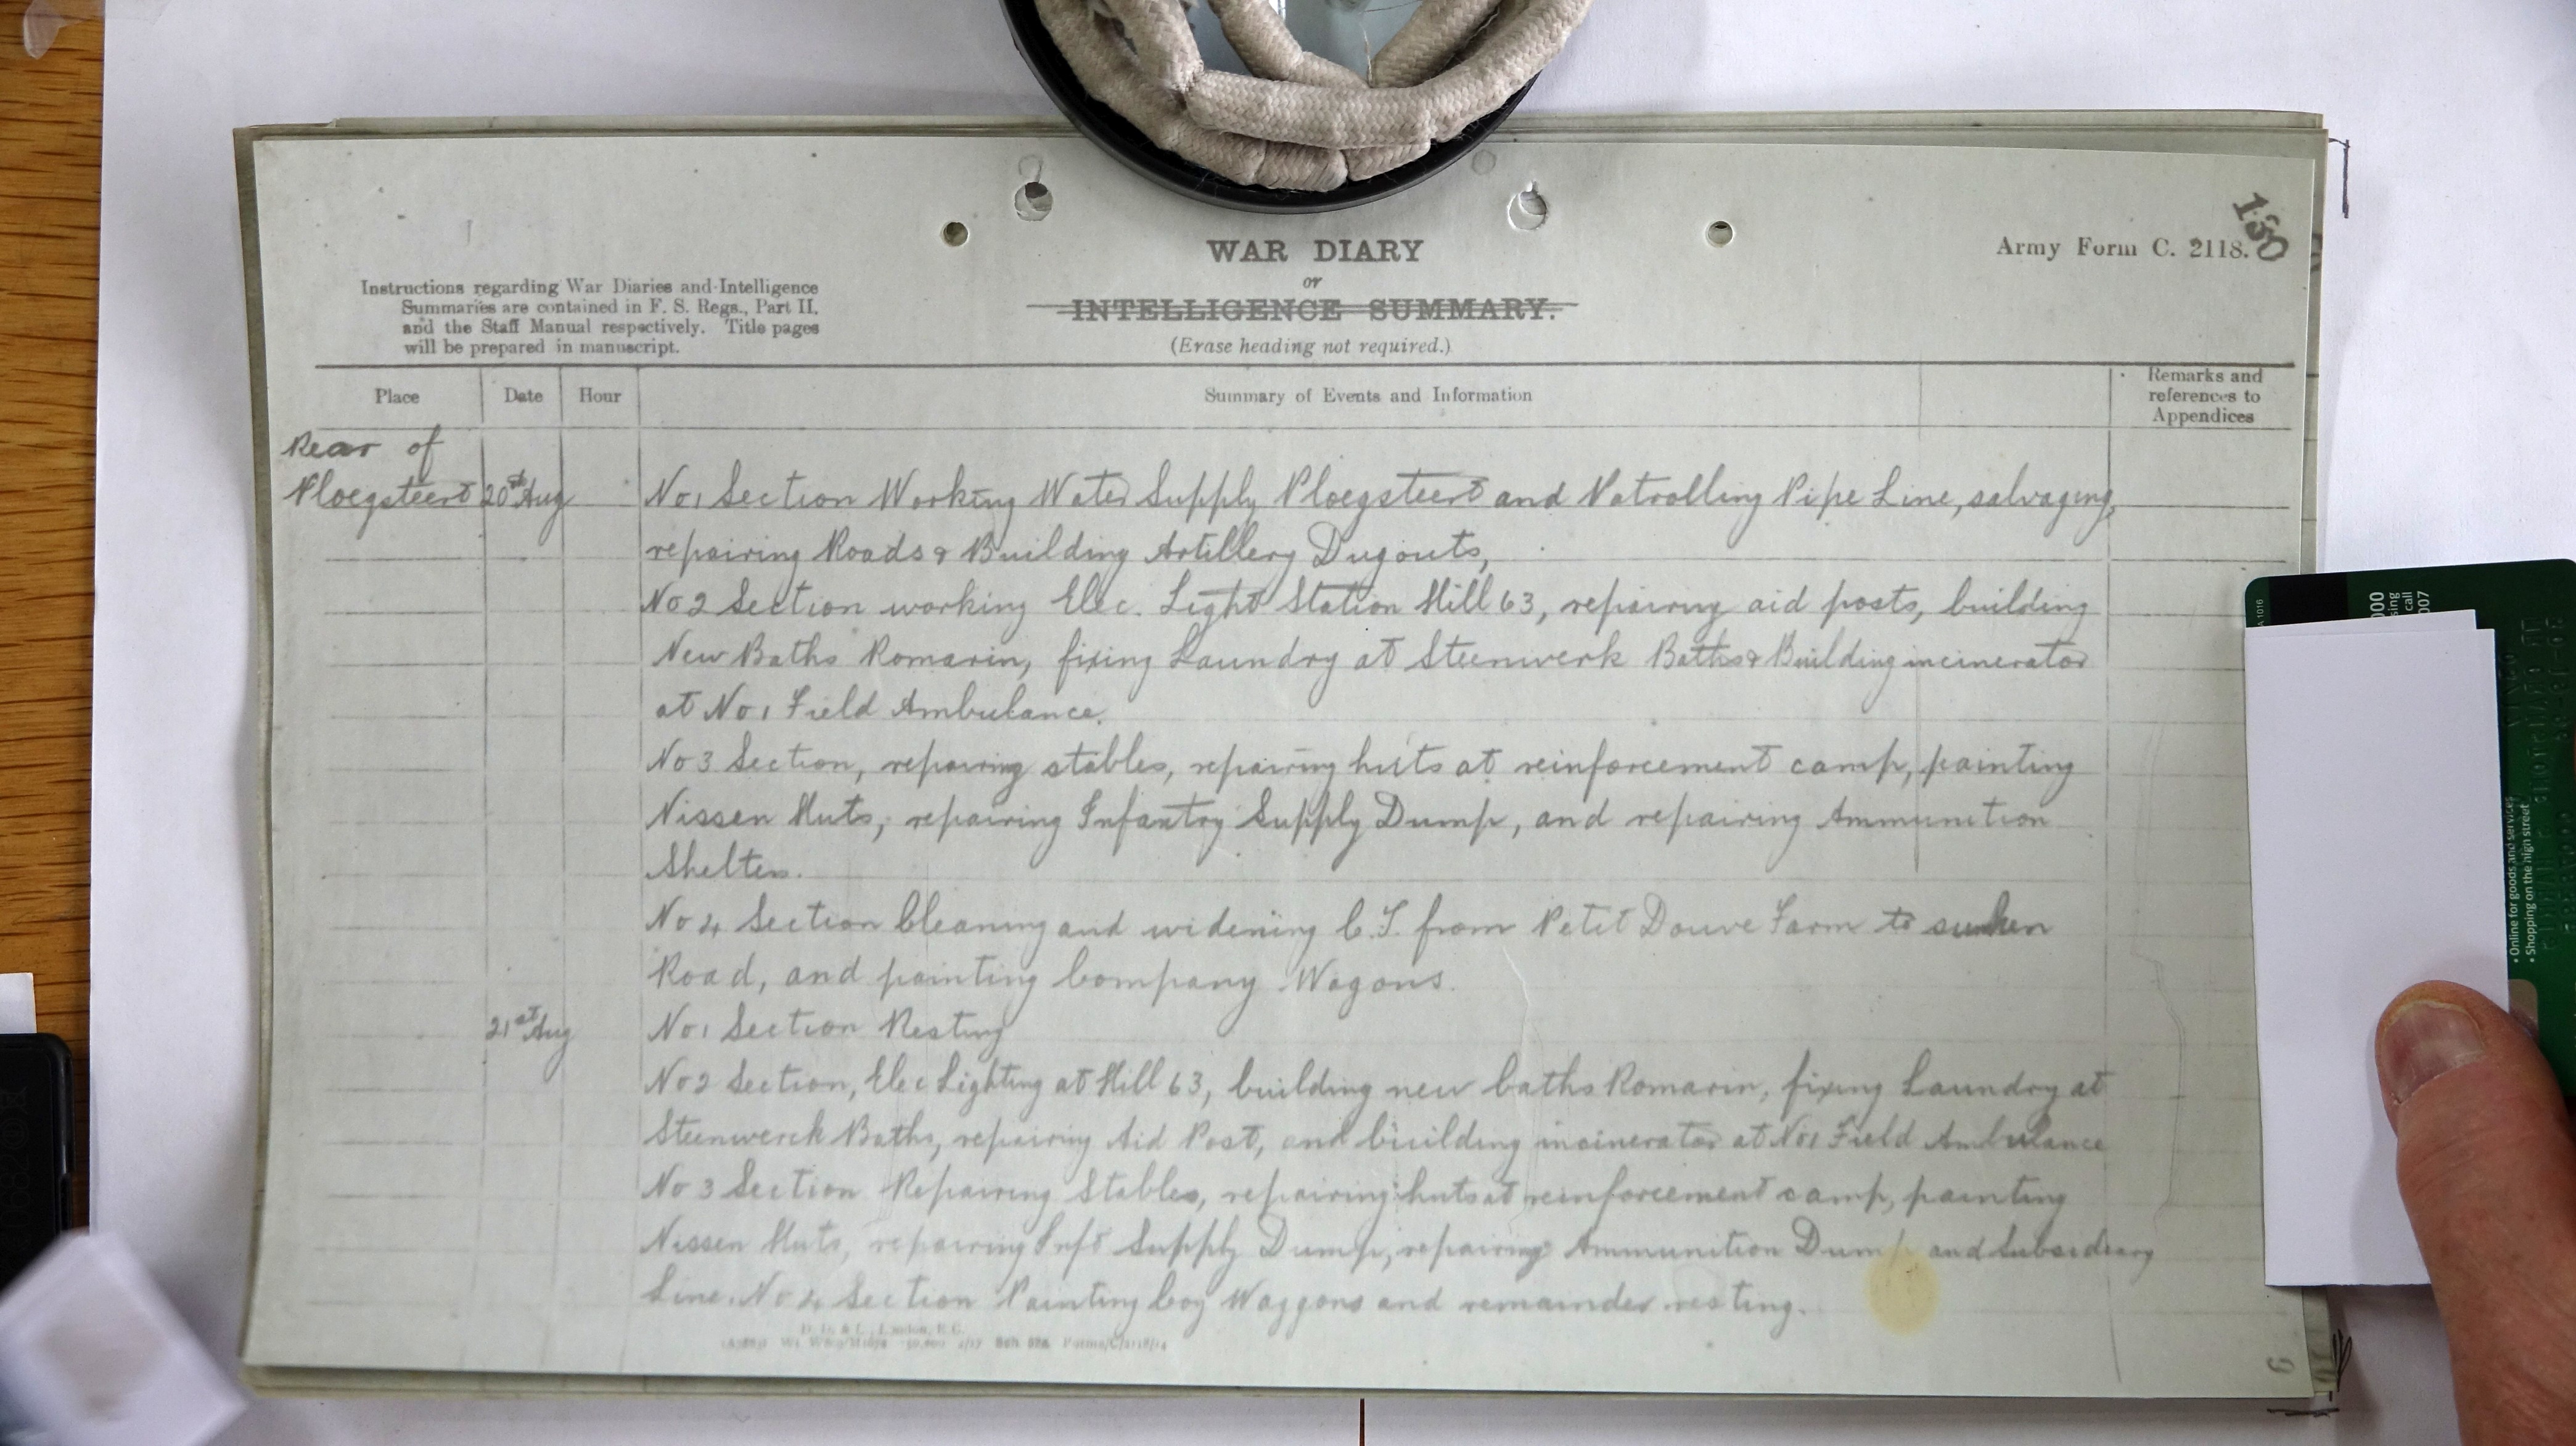 130
WAR DIARY
Army Form C. 2118.
or
INTELLIGENCE SUMMARY.
(Erase heading not required.)
Instructions regarding War Diaries and Intelligence
Summaries are contained in F. S. Regs., Part II,
and the Staff Manual respectively. Title pages
will be prepared in manuscript.
Place Date Hour Summary of Events and Information Remarks and
references to
Appendices
Rear of
Ploegsteert 20th Aug No 1 Section Working Water Supply Ploegsteert and Patrolling Pipe Line, salvaging,
repairing Roads & Building Artillery Dugouts,
No 2 Section working Elec. Light Station Hill 63, repairing aid posts, building
New Baths Romarin, fixing Laundry at Steenwerk Baths & Building incinerator
at No 1 Field Ambulance.
No 3 Section, repairing stables, repairing huts at reinforcement camp, painting
Nissen Huts, repairing Infantry Supply Dump, and repairing Ammunition
Shelters.
No 4 Section Cleaning and widening C.T. from Petit Douve Farm to sunken
Road, and painting Company Wagons.
21st Aug No 1 Section Resting
No 2 Section, Elec Lighting at Hill 63, building new baths Romarin, fixing Laundry at
Steenwerck Baths, repairing Aid Post, and building incinerator at No 1 Field Ambulance
No 3 Section Repairing Stables, repairing huts at reinforcement camp, painting
Nissen Huts, repairing Inft Supply Dump, repairing Ammunition Dump and Subsidiary
Line. No 4 Section Painting Coy Waggons and remainder resting.
D. D. & L., London, E.C.
Sch 52a Forms/C/2118/14
000
call
007
• Online for goods and services
• Shopping on the high street
9